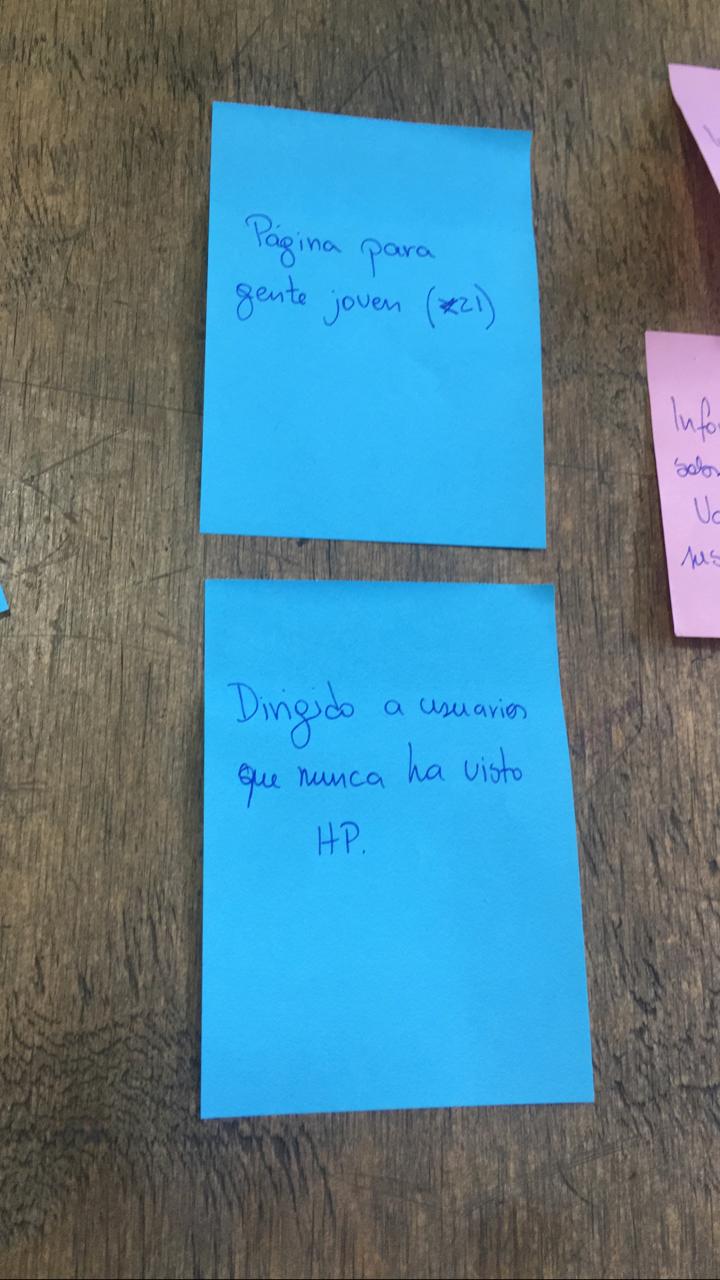 Página para
gente joven (<21)
Dirigido a usuarios
que nunca ha visto
HP.
Info
sobr